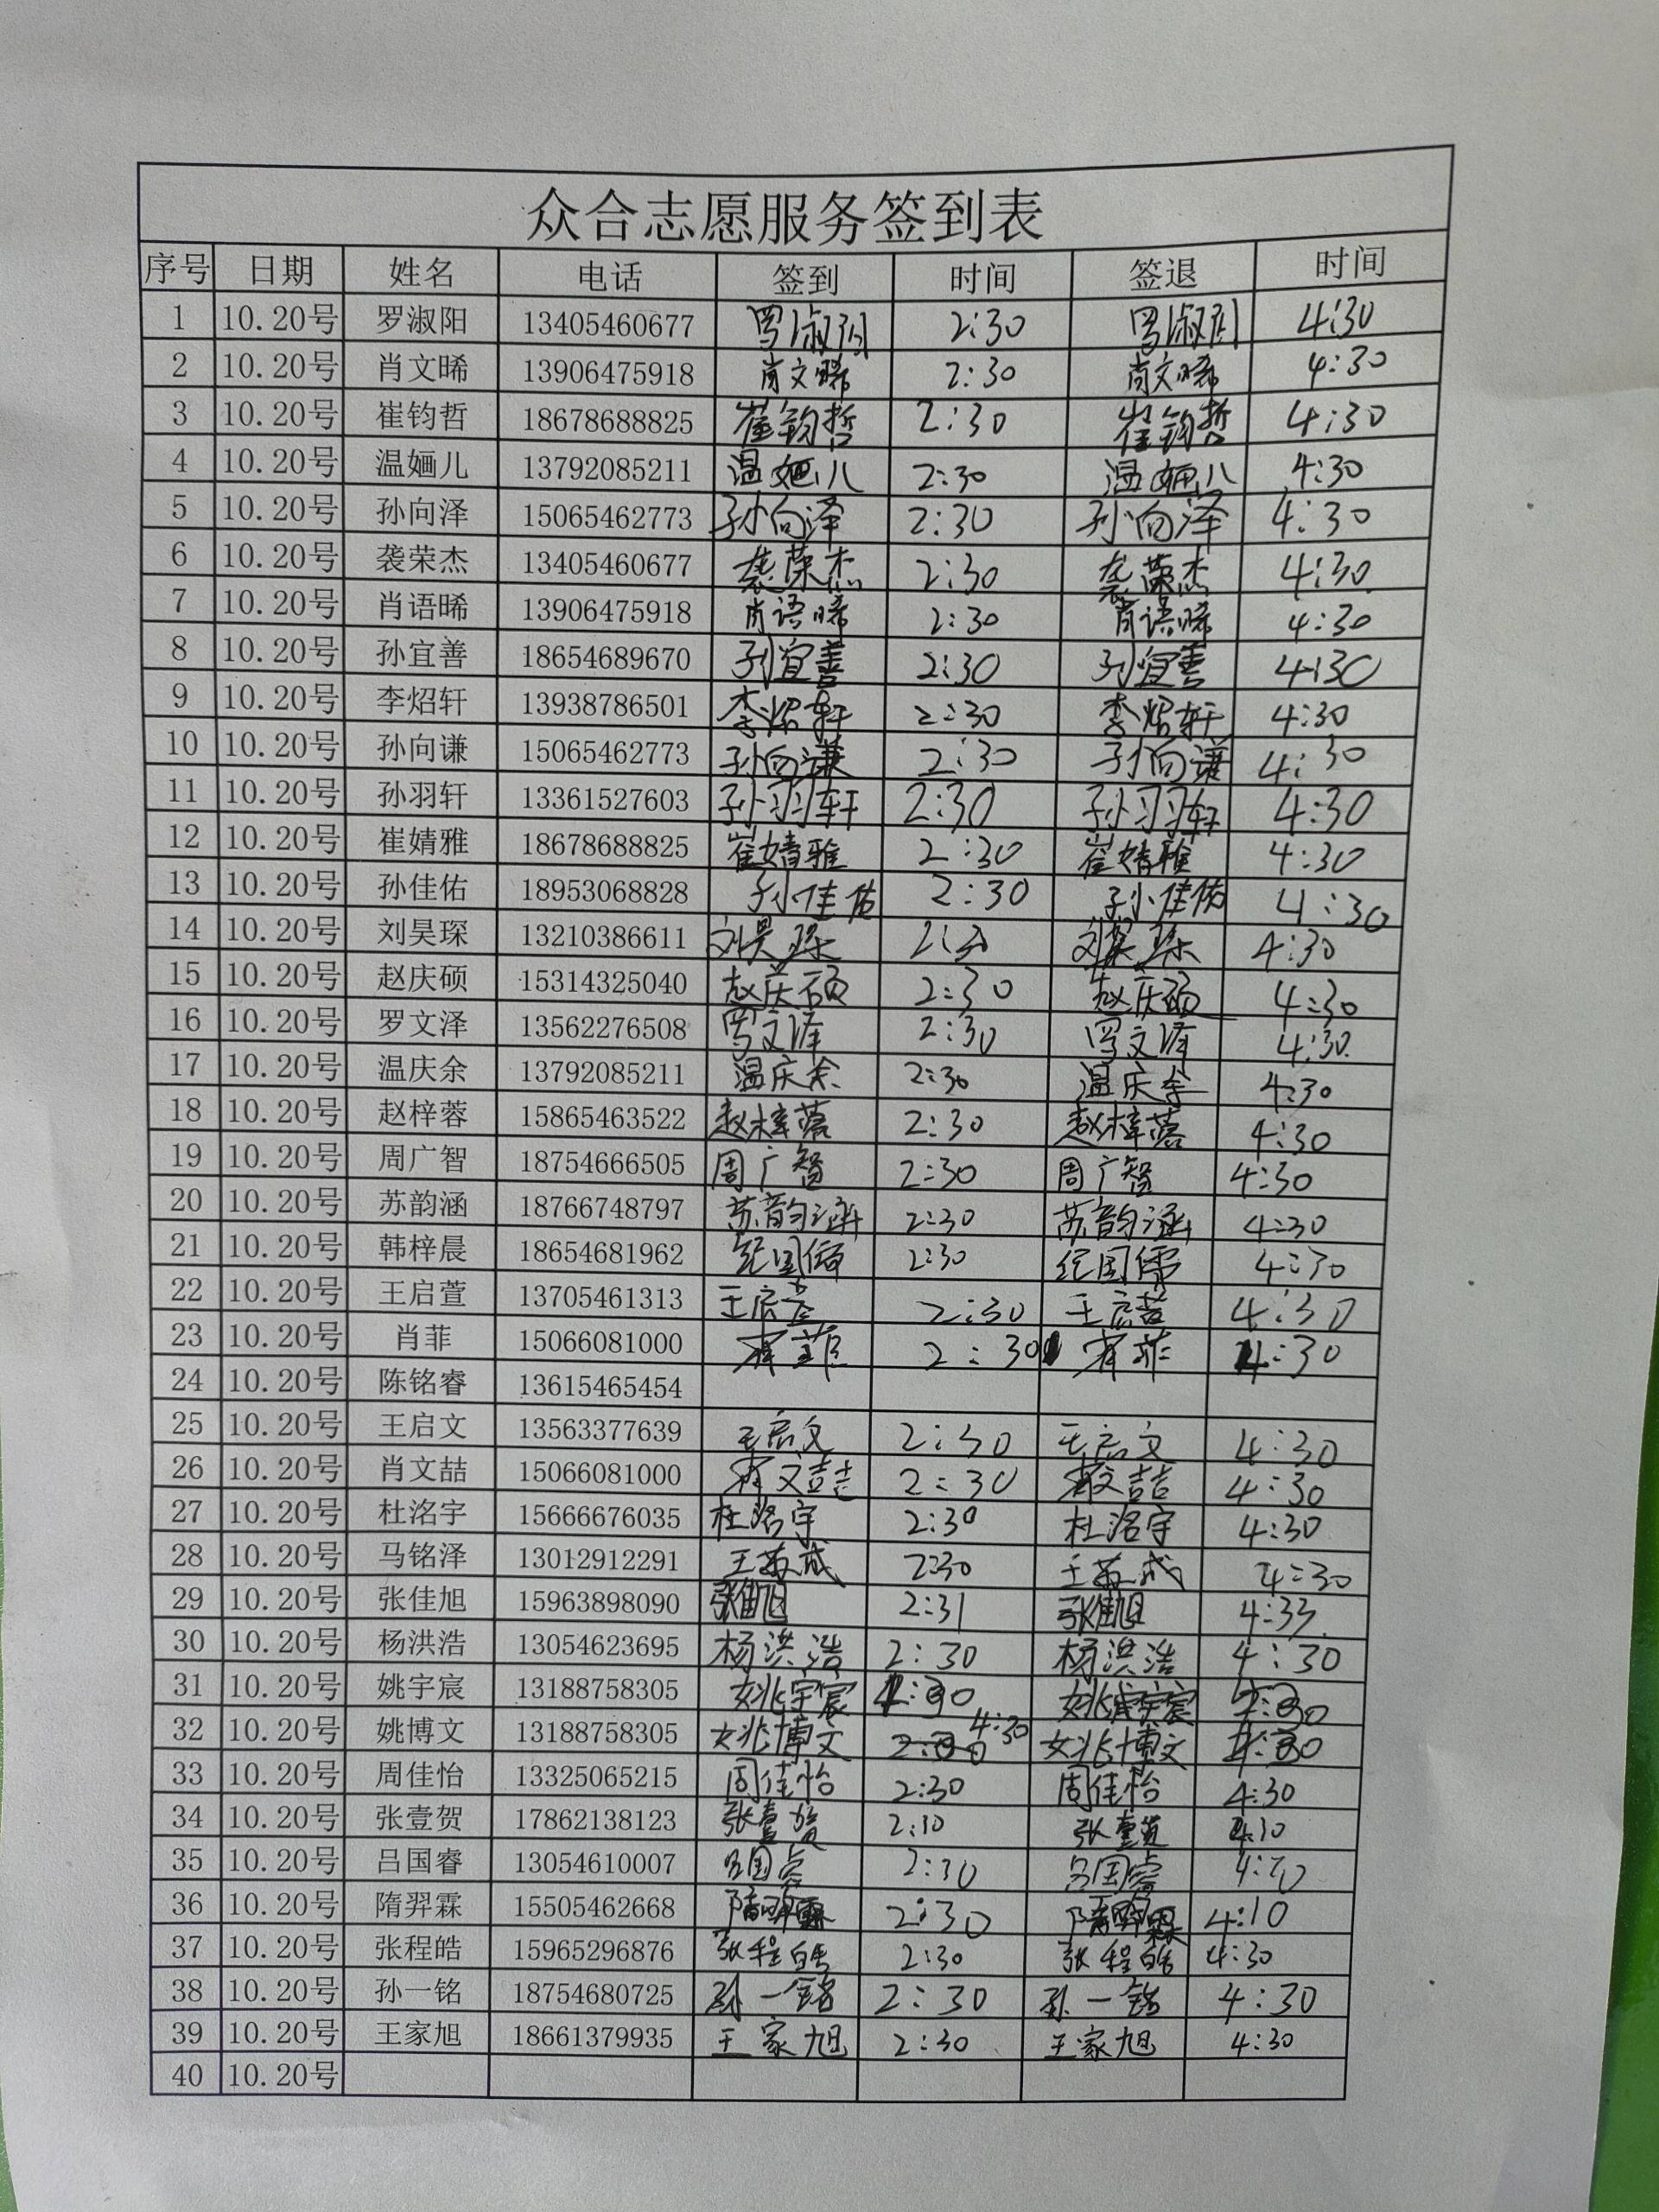 众合志愿服务签到表
序号 日期 姓名 电话 签到 时间 签退 时间
1 10.20号 罗淑阳 13405460677 罗淑阳 2:30 罗淑阳 4:30
2 10.20号 肖文晞 13906475918 肖文晞 2:30 肖文晞 4:30
3 10.20号 崔钧哲 18678688825 崔钧哲 2:30 崔钧哲 4:30
4 10.20号 温婳儿 13792085211 温婳儿 2:30 温婳儿 4:30
5 10.20号 孙向泽 15065462773 孙向泽 2:30 孙向泽 4:30
6 10.20号 袭荣杰 13405460677 袭荣杰 2:30 袭荣杰 4:30
7 10.20号 肖语晞 13906475918 肖语晞 2:30 肖语晞 4:30
8 10.20号 孙宜善 18654689670 孙宜善 2:30 孙宜善 4:30
9 10.20号 李炤轩 13938786501 李炤轩 2:30 李炤轩 4:30
10 10.20号 孙向谦 15065462773 孙向谦 2:30 孙向谦 4:30
11 10.20号 孙羽轩 13361527603 孙羽轩 2:30 孙羽轩 4:30
12 10.20号 崔婧雅 18678688825 崔婧雅 2:30 崔婧雅 4:30
13 10.20号 孙佳佑 18953068828 孙佳佑 2:30 孙佳佑 4:30
14 10.20号 刘昊琛 13210386611 刘昊琛 刘昊琛 4:30
15 10.20号 赵庆硕 15314325040 赵庆硕 2:30 赵庆硕 4:30
16 10.20号 罗文泽 13562276508 罗文泽 2:30 罗文泽 4:30
17 10.20号 温庆余 13792085211 温庆余 2:30 温庆余 4:30
18 10.20号 赵梓蓉 15865463522 赵梓蓉 2:30 赵梓蓉 4:30
19 10.20号 周广智 18754666505 周广智 2:30 周广智 4:30
20 10.20号 苏韵涵 18766748797 苏韵涵 2:30 苏韵涵 4:30
21 10.20号 韩梓晨 18654681962 纪国儒 2:30 纪国儒 4:30
22 10.20号 王启萱 13705461313 王启萱 2:30 王启萱 4:30
23 10.20号 肖菲 15066081000 肖菲 2:30 肖菲 4:30
24 10.20号 陈铭睿 13615465454
25 10.20号 王启文 13563377639 王启文 2:30 王启文 4:30
26 10.20号 肖文喆 15066081000 肖文喆 2:30 肖文喆 4:30
27 10.20号 杜洺宇 15666676035 杜洺宇 2:30 杜洺宇 4:30
28 10.20号 马铭泽 13012912291 2:30 4:30
29 10.20号 张佳旭 15963898090 张佳旭 2:31 张佳旭 4:33
30 10.20号 杨洪浩 13054623695 杨洪浩 2:30 杨洪浩 4:30
31 10.20号 姚宇宸 13188758305 姚宇宸 姚宇宸
32 10.20号 姚博文 13188758305 姚博文 4:30 姚博文 4:30
33 10.20号 周佳怡 13325065215 周佳怡 2:30 周佳怡 4:30
34 10.20号 张壹贺 17862138123 张壹贺 2:30 张壹贺 4:30
35 10.20号 吕国睿 13054610007 吕国睿 2:30 吕国睿
36 10.20号 隋羿霖 15505462668 隋羿霖 2:30 隋羿霖 4:10
37 10.20号 张程皓 15965296876 张程皓 2:30 张程皓 4:30
38 10.20号 孙一铭 18754680725 孙一铭 2:30 孙一铭 4:30
39 10.20号 王家旭 18661379935 王家旭 2:30 王家旭 4:30
40 10.20号